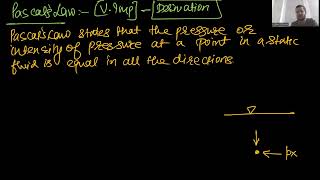 Pascal's Law :- [V. Imp] - [Derivation]
Pascal's Law states that the pressure or
intensity of pressure at a point in a static
fluid is equal in all the directions
px